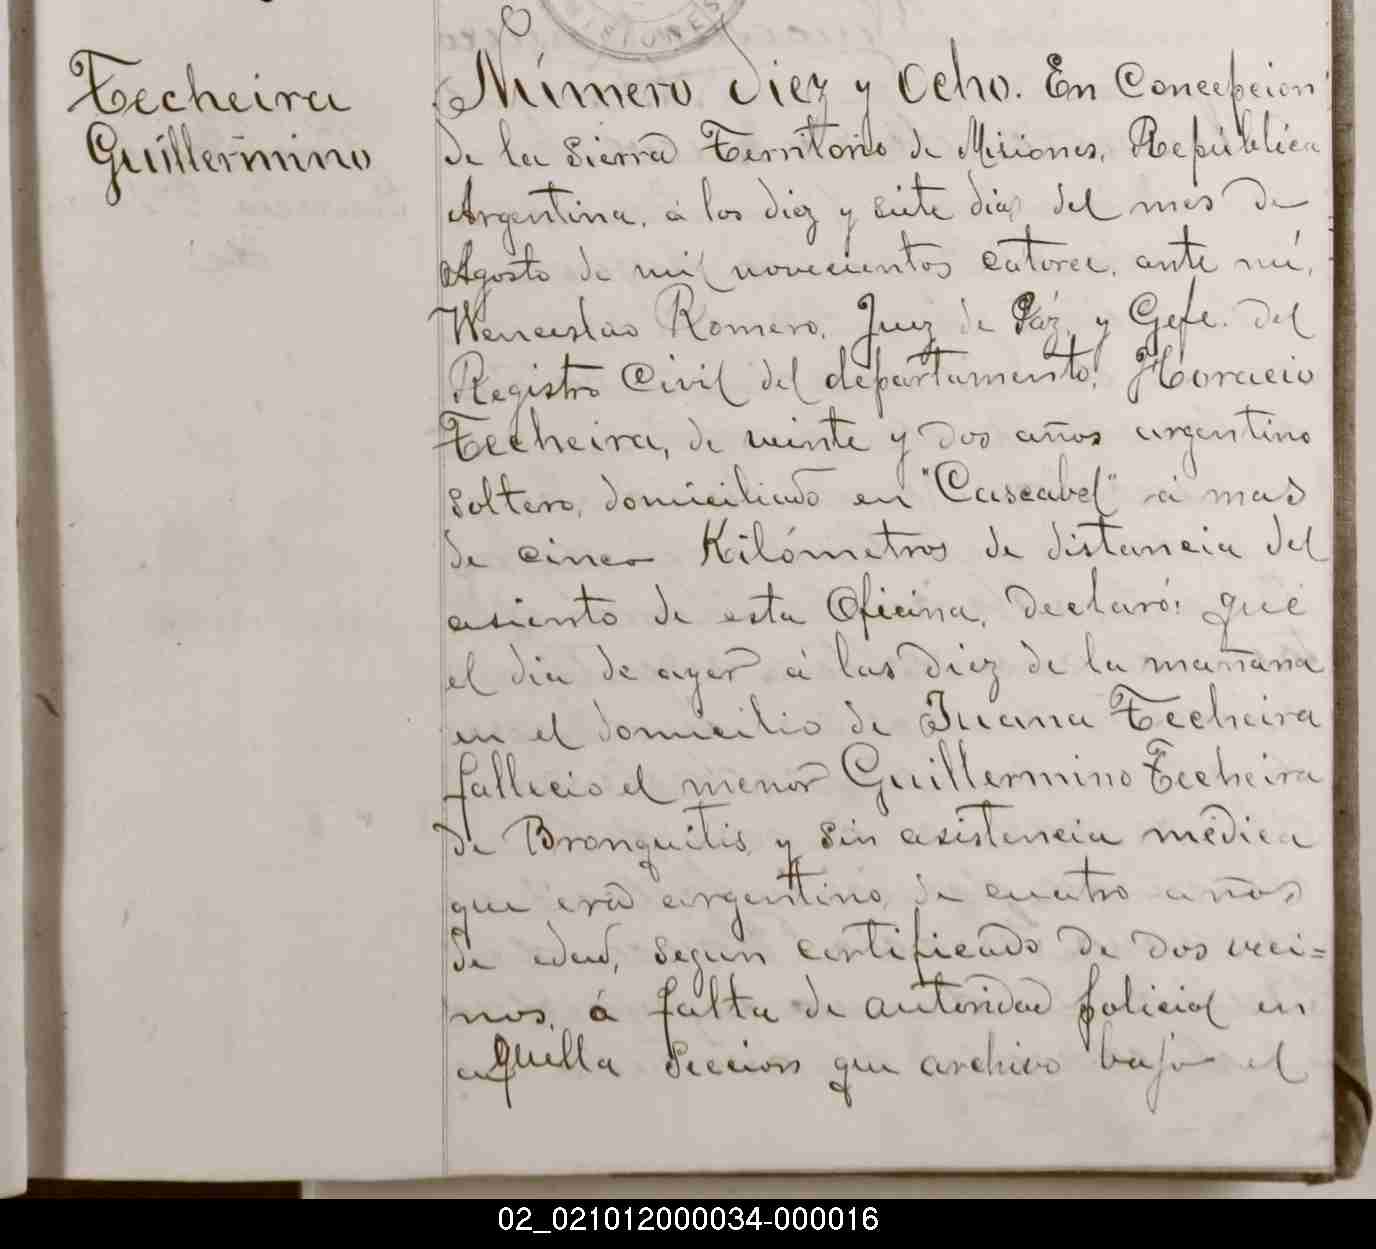 Techeira
Guillermino
Número diez y ocho. En Concepcion
de la Sierra Territorio de Misiones, República
Argentina, á los diez y siete dias del mes de
Agosto de mil novecientos catorce, ante mí,
Wenceslao Romero, Juez de Páz, y Gefe del
Registro Civil del departamento, Horacio
Techeira, de veinte y dos años argentino
soltero, domiciliado en "Cascabel" á mas
de cinco Kilómetros de distancia del
asiento de esta Oficina, declaró: que
el dia de ayer á las diez de la mañana
en el domicilio de Juana Techeira
fallecio el menor Guillermino Techeira
de Bronquitis, y sin asistencia médica
que era argentino, de cuatro años
de edad, segun certificado de dos veci=
nos, á falta de autoridad policial en
aquella Seccion que archivo bajo el
02_021012000034-000016